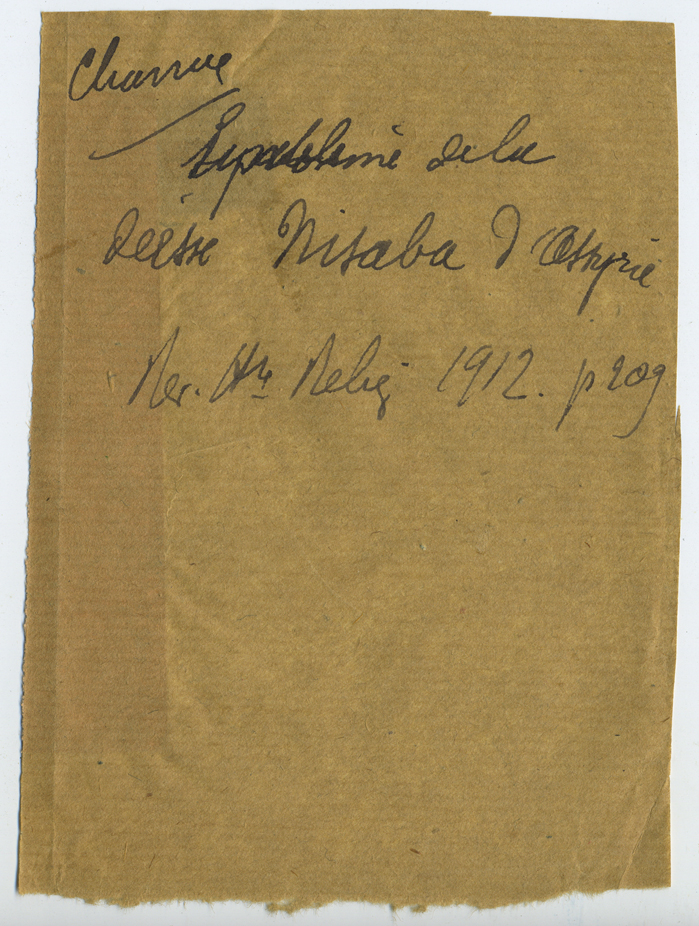 Charrue
de la
déesse Nisaba d'Assyrie
Rev. Hre Relig 1912. p 209